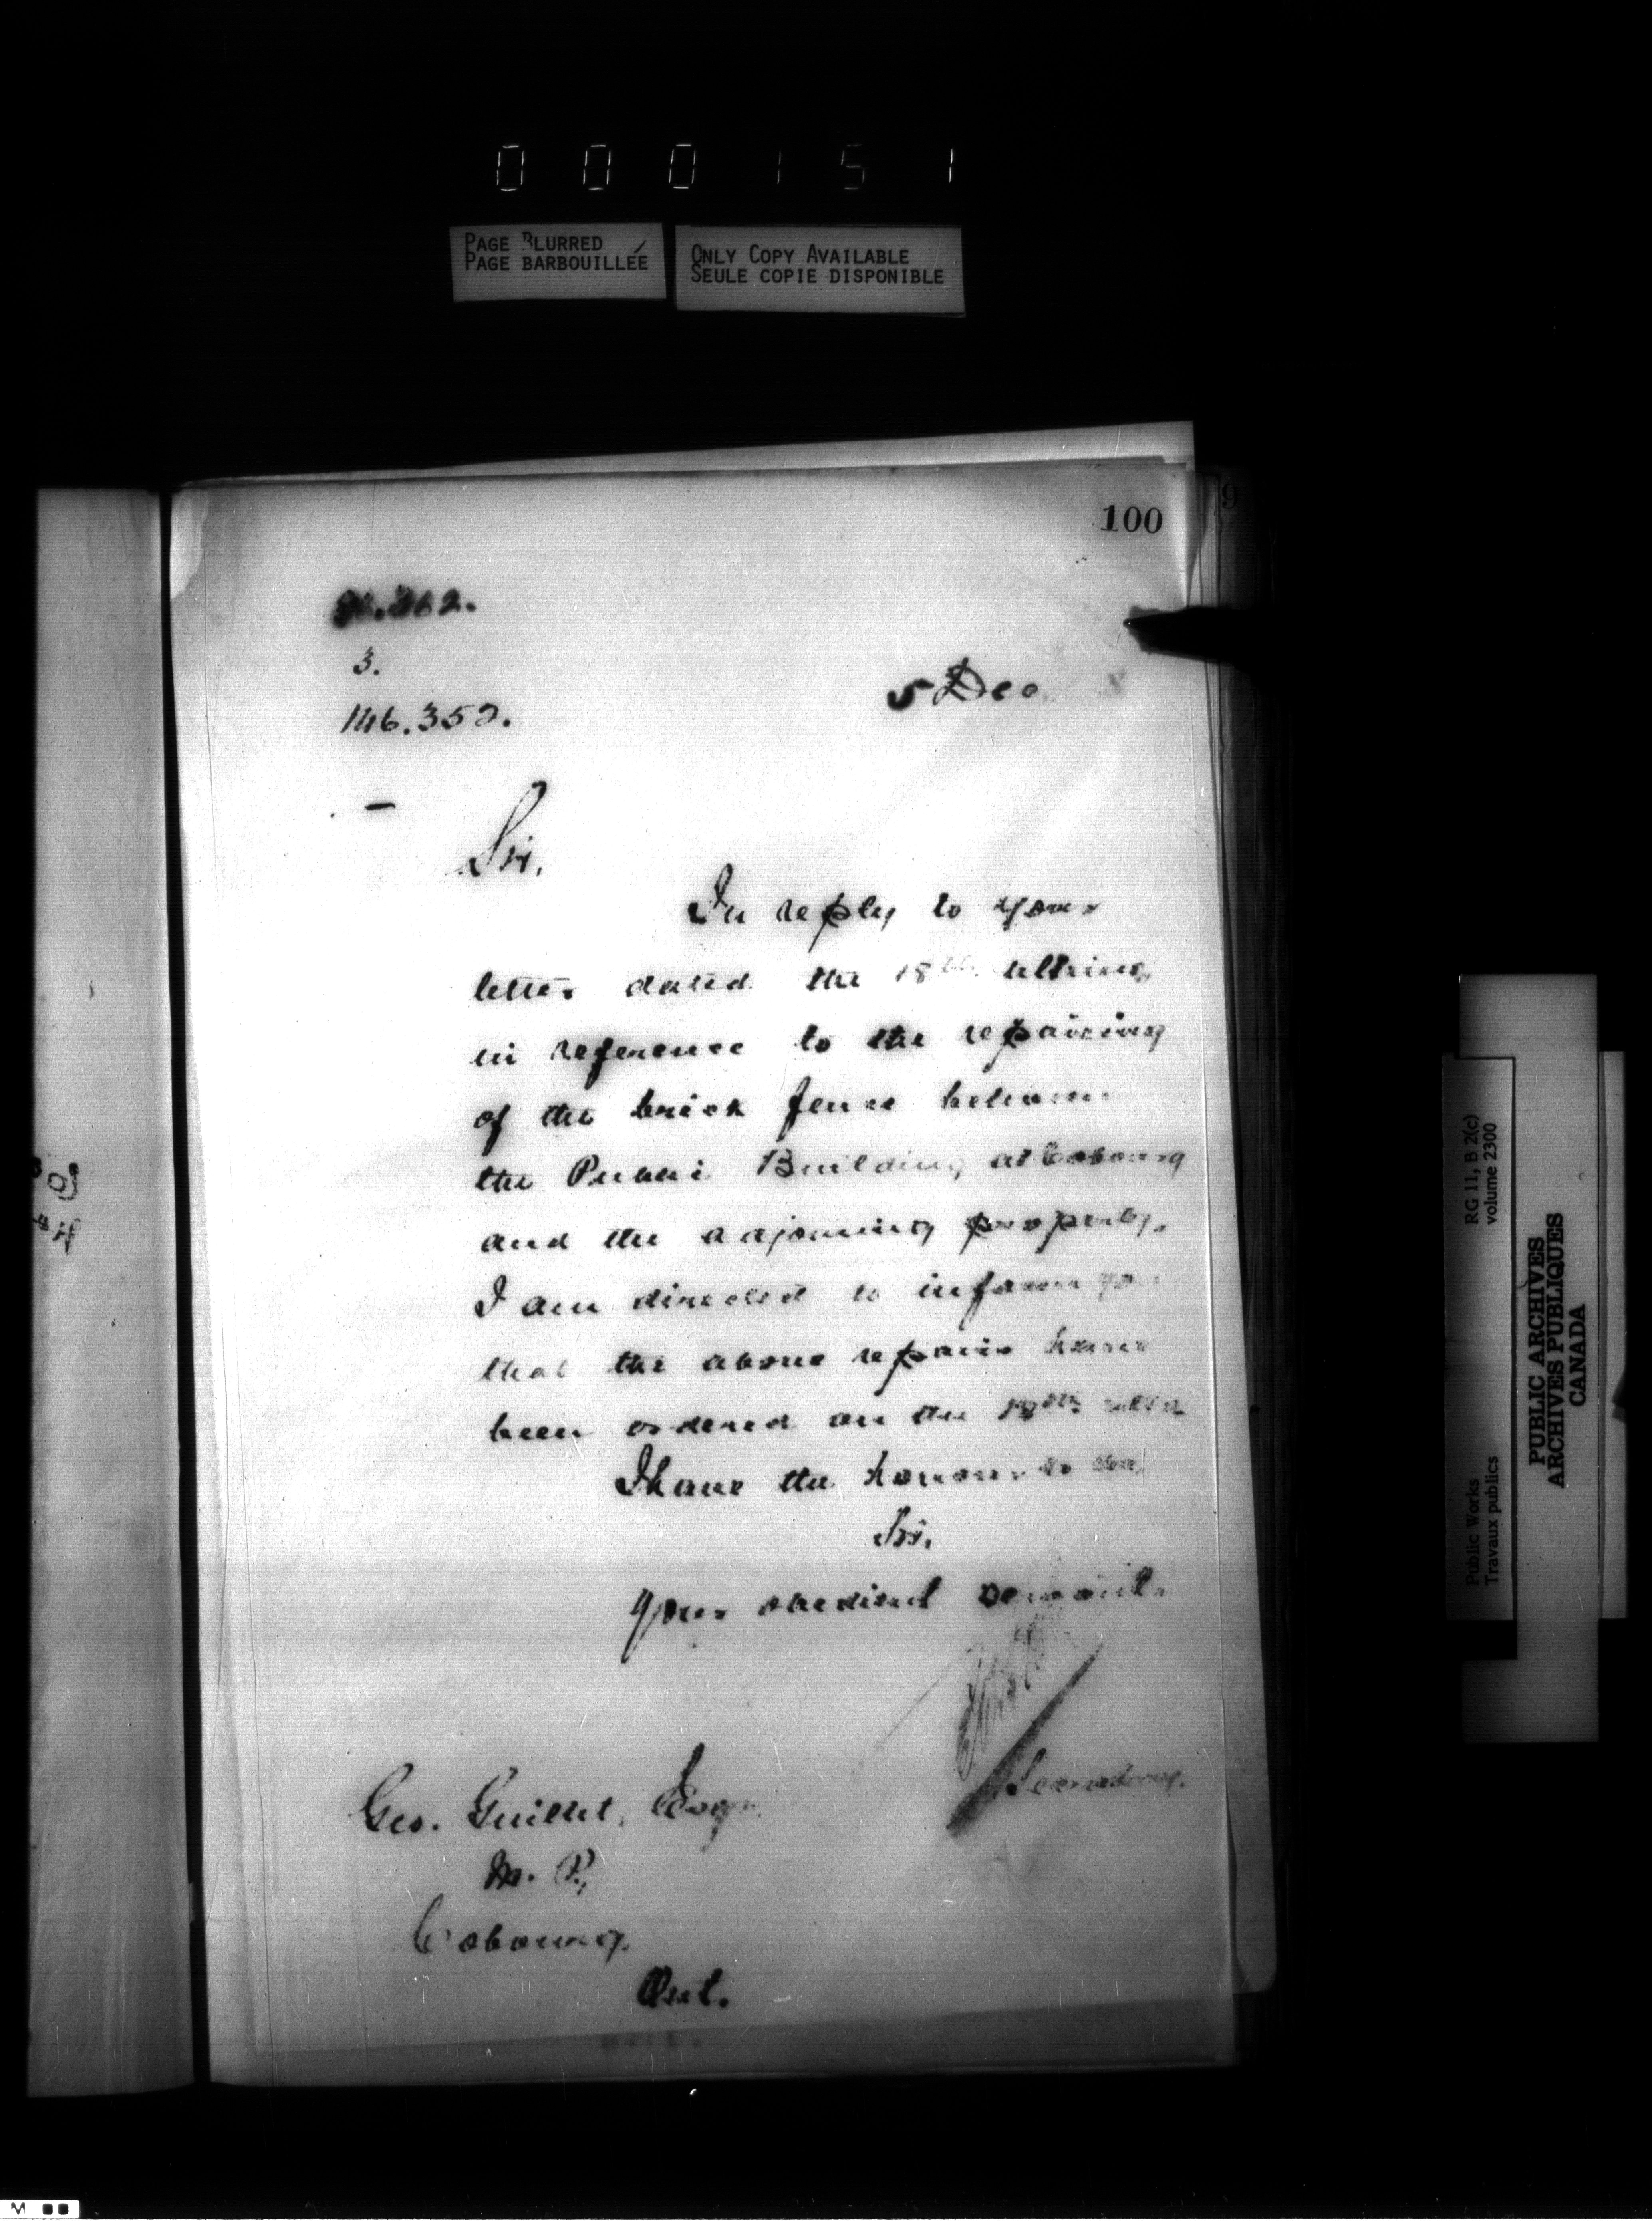 000151
PAGE BLURRED
PAGE BARBOUILLÉE
ONLY COPY AVAILABLE
SEULE COPIE DISPONIBLE
100
3.
5 Dec
Sir,
In reply to your
letter dated the 18th ultimo,
in reference to the repairing
of the brick fence between
the Public Building at Cobourg
and the adjoining property,
I am directed to inform you
that the above repairs have
been ordered on the 18th ulto
I have the honour to be,
Sir,
Your obedient servant.
Secretary.
Geo. Guillet, Esqr
M. P.,
Cobourg.
Ont.
Public Works
Travaux publics
RG 11, B 2(c)
volume 2300
PUBLIC ARCHIVES
ARCHIVES PUBLIQUES
CANADA
M